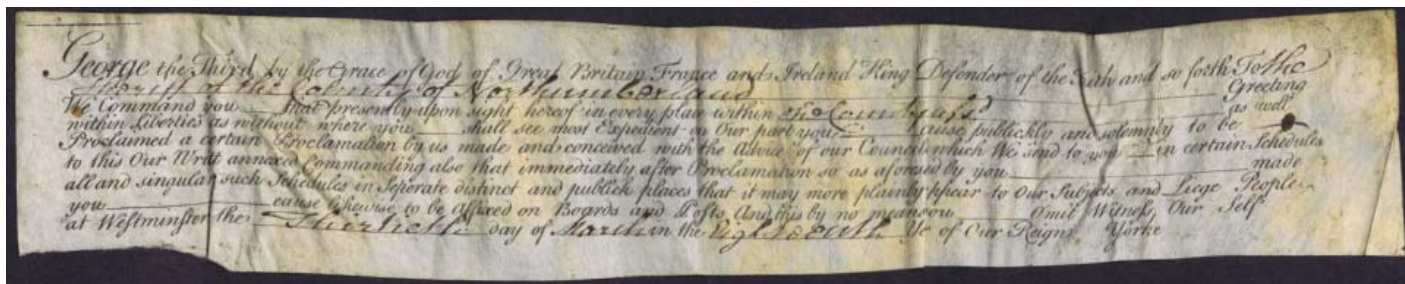 George the Third by the Grace of God of Great Britain France and Ireland King Defender of the Faith and so forth To the
Sheriff of the County of Northumberland Greeting
We Command you that presently upon sight hereof in every place within the County afsd as well
within Liberties as without where you shall see most Expedient on Our part you Cause publickly and solemnly to be
Proclaimed a certain Proclamation by us made and conceived with the Advice of our Council which We send to you in certain Schedules
to this Our Writt annexed Commanding also that immediately after Proclamation so as aforesd by you made
all and singular such Schedules in Seperate distinct and publick places that it may more plainly appear to Our Subjects and Liege People
you cause likewise to be Affixed on Boards and Posts And this by no means you Omit Witness Our Self
at Westminster the Thirtieth day of March in the Eighteenth Yr of Our Reign Yorke